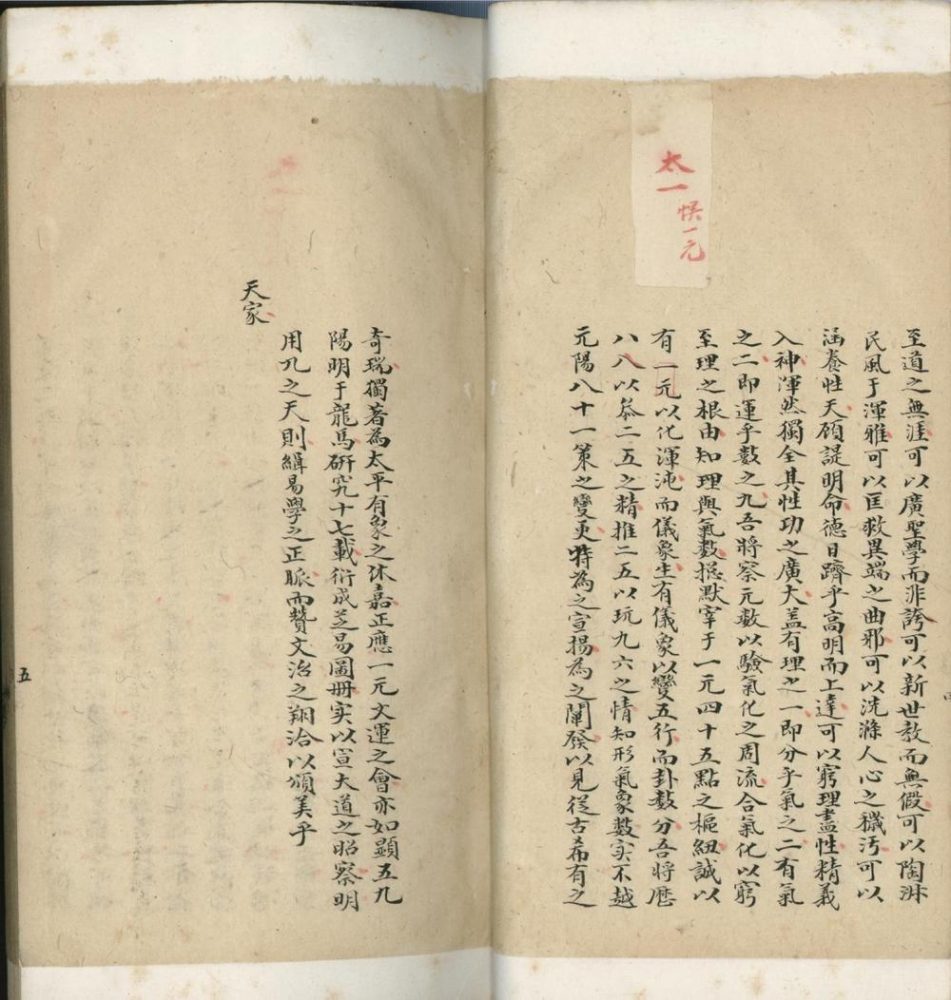 太一 悮一元
至道之無涯可以廣聖學而非誇可以新世教而無假可以陶淑
民風于渾雅可以匡救異端之曲邪可以洗滌人心之穢污可以
涵養性天顧諟明命德日躋乎高明而上達可以窮理盡性精義
入神渾然獨全其性功之廣大盖有理之一即分乎氣之二有氣
之二即運乎數之九吾將察元數以驗氣化之周流合氣化以窮
至理之根由知理與氣數揔默宰于一元四十五點之樞紐誠以
有一元以化渾沌而儀象生有儀象以變五行而卦數分吾將歷
八八以叅二五之精推二五以玩九六之情知形氣象數实不越
元陽八十一策之變更特為之宣揚為之闡發以見從古希有之
奇瑞獨著為太平有象之休嘉正應一元文運之會亦如顕五九
陽明于龍馬研究十七載衍成芝易圖冊实以宣大道之昭察明
用九之天則緝易學之正脈而贊文治之翔洽以頌美乎
天家
五